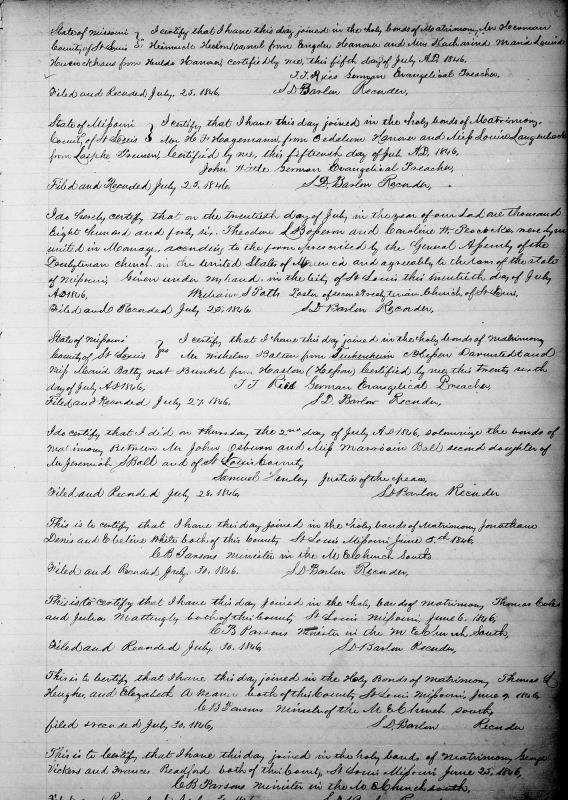 State of Missouri } I certify that I have this day joined in the holy bonds of Matrimony, Mr Herman
County of St Louis } ss Heinrich from Hanover and Miss Katharina Maria Louisa
from Hanover, certified by me, this fifth day of July A.D. 1846.
German Evangelical Preacher,
Filed and Recorded July 25. 1846 S D Barlow Recorder,
State of Missouri } I certify that I have this day joined in the Holy bonds of Matrimony.
County of St Louis } Mr H. F. Hagemann, from Hanover and Miss Louise
from Certified by me, this fifteenth day of July A.D. 1846,
John German Evangelical Preacher,
Filed and Recorded July 25. 1846. S. D. Barlow Recorder,
I do hereby certify that on the twentieth day of July in the year of our Lord one thousand
Eight hundred and forty six. Theodore L and Caroline W. Peacocke were by me
united in Marriage, according to the form prescribed by the General Assembly of the
Presbyterian church in the United States of America and agreeably to the laws of the state
of Missouri, Given under my hand in the City of St Louis this twentieth day of July
AD 1846, William S Potts Pastor of second Presbyterian Church of St Louis,
Filed and Recorded July 25. 1846. S D Barlow Recorder,
State of Missouri } I certify, that I have this day joined in the holy bonds of matrimony
County of St Louis } Mr Wilhelm from Darmstadt and
Miss Maria from Certified by me, this twenty
day of July A D 1846, German Evangelical Preacher,
Filed and Recorded July 27. 1846. S. D. Barlow Recorder,
I do certify that I did on Thursday, the 2nd day of July A D 1846, solemnize the bonds of
matrimony between Mr John Osburn and Miss Ball second daughter of
Mr Jeremiah S Ball and of St Louis County
Samuel Justice of the peace,
Filed and Recorded July 28. 1846 S D Barlow Recorder
This is to certify that I have this day joined in the holy bonds of Matrimony, Jonathan
Denis and Eveline White both of this County St Louis Missouri June 5th 1846,
C B Parsons Minister in the M. E. Church South
Filed and Recorded July 30. 1846. S D Barlow Recorder,
This is to certify that I have this day joined in the holy bonds of matrimony Thomas
and Julia Mattingly both of this County St Louis Missouri, June 6. 1846,
C B Parsons Minister in the M E Church South,
Filed and Recorded July 30. 1846 S D Barlow Recorder,
This is to Certify, that I have this day joined in the Holy Bonds of Matrimony, Thomas
Hughes, and Elizabeth A both of this County St Louis Missouri, June 9. 1846
C B Parsons Minister of the M E Church South
filed & recorded July 30. 1846, S. D. Barlow Recorder
This is to Certify, that I have this day joined in the holy bonds of matrimony, George
Vickers and Frances both of this County, St Louis Missouri June 25. 1846,
C B Parsons minister in the M. E. Church South,